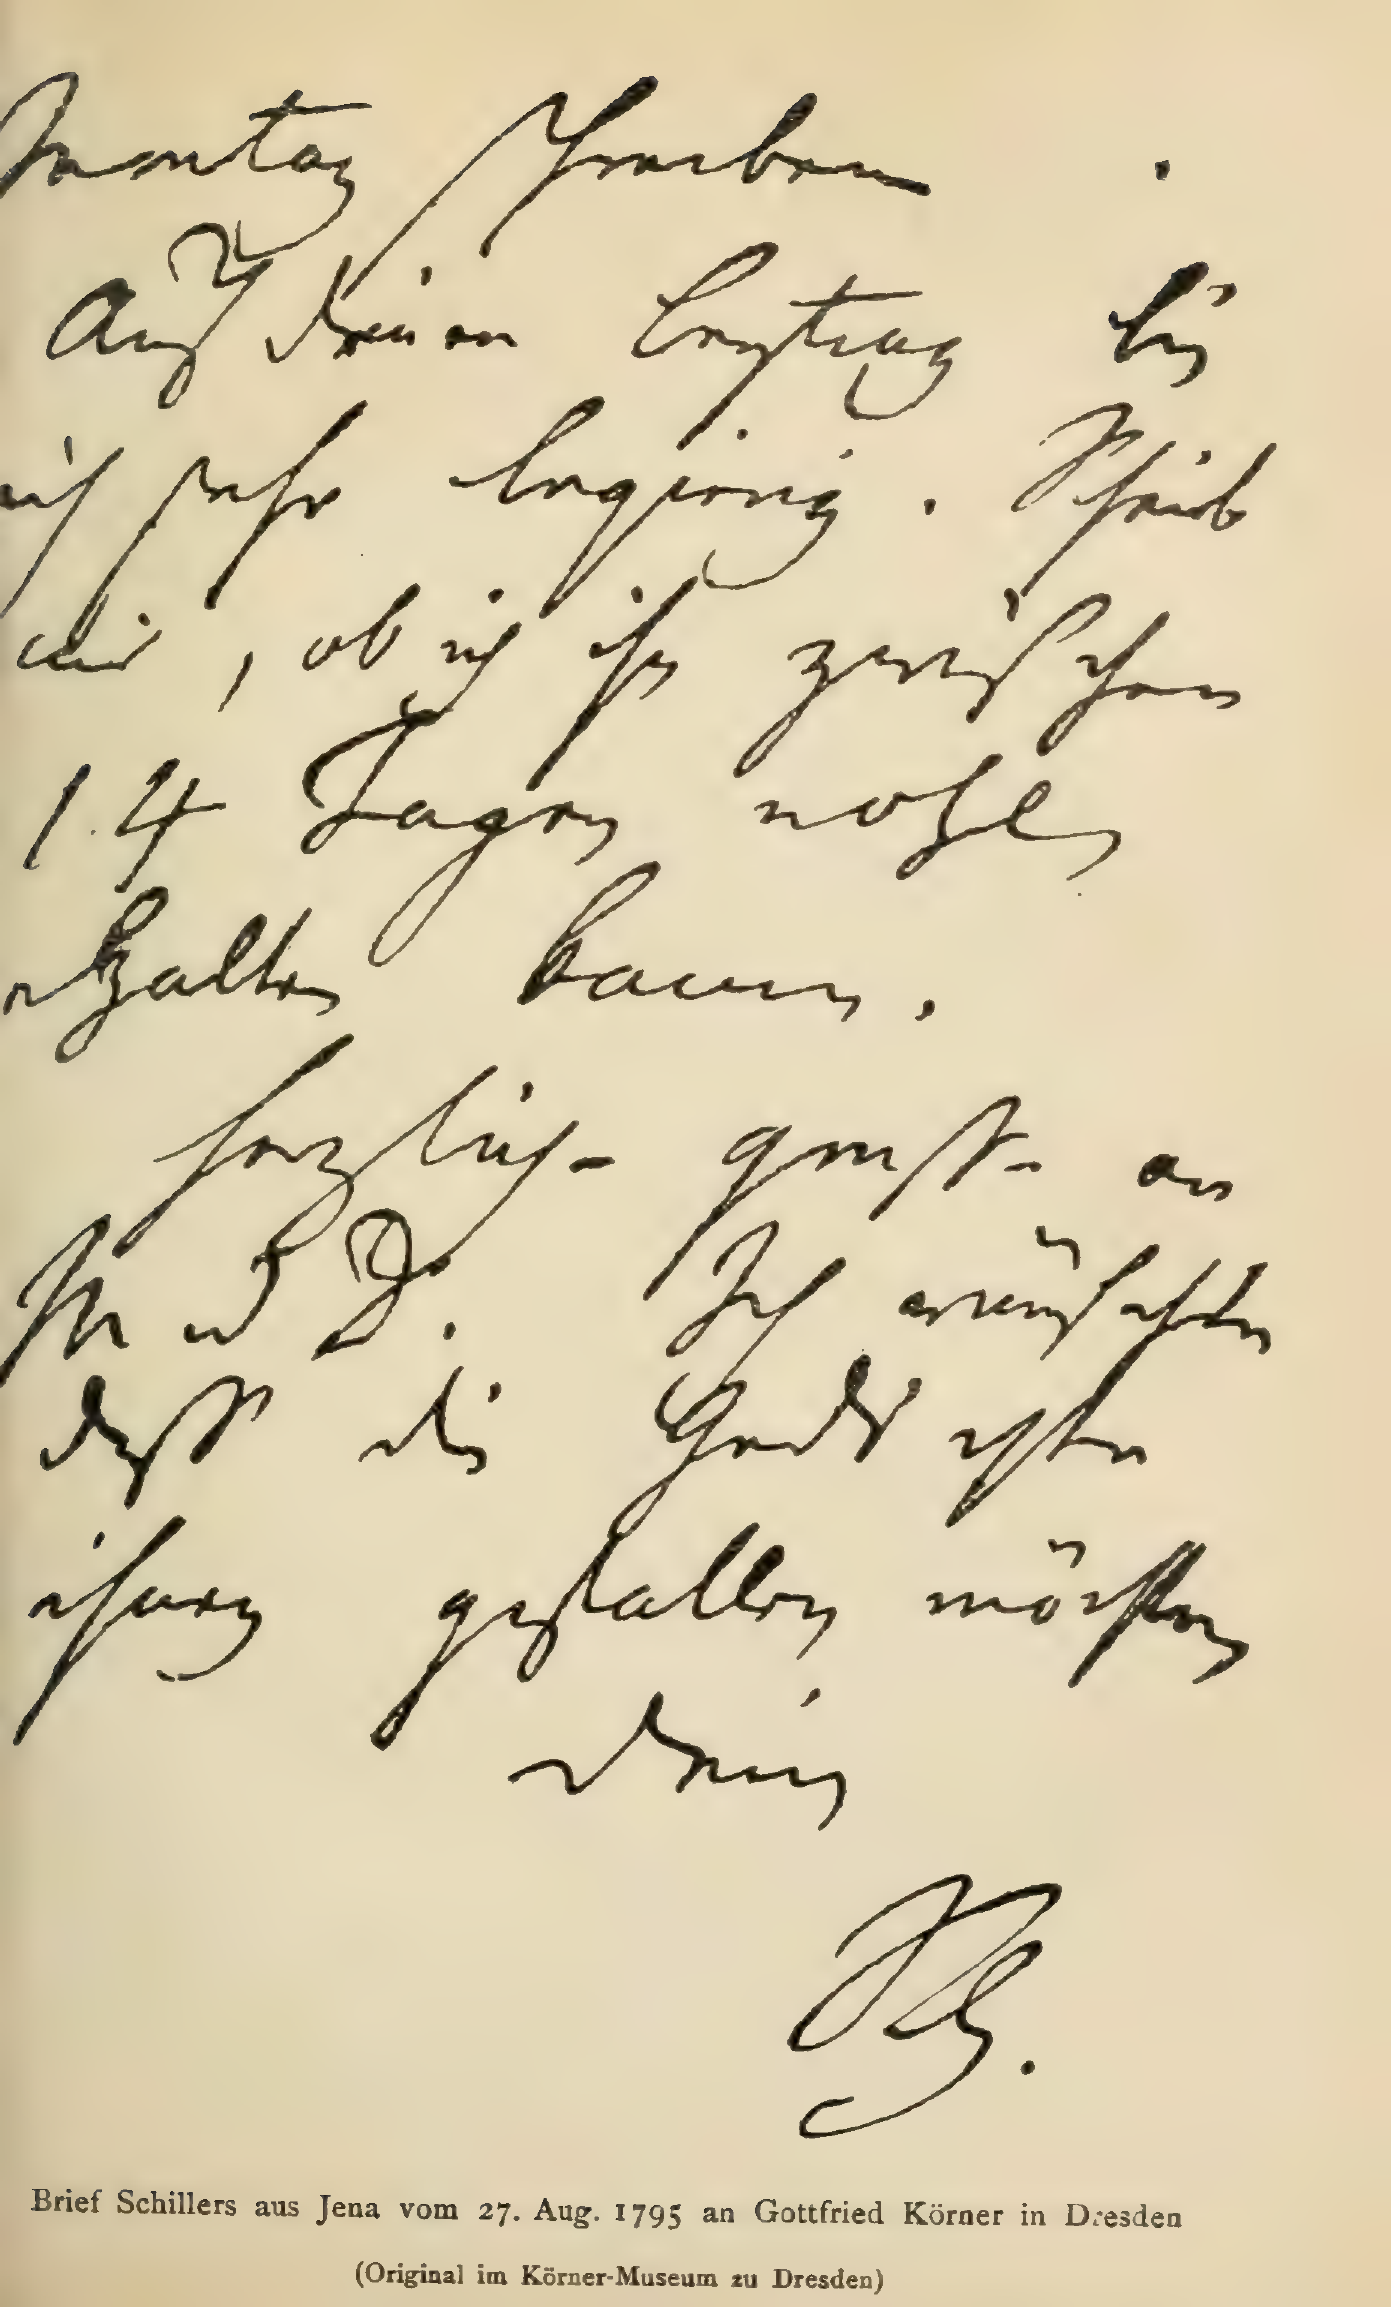 Montag schreiben.
Auf Deinen Beytrag bin
ich sehr begierig. Schreib
mir, ob ich ihn zwischen
14 Tagen wohl
erhalten kann.
Herzliche Grüße an
M u D. Ich wünschte
daß die Gedichte
ihnen gefallen möchten
Dein
Sch.
Brief Schillers aus Jena vom 27. Aug. 1795 an Gottfried Körner in Dresden
(Original im Körner-Museum zu Dresden)